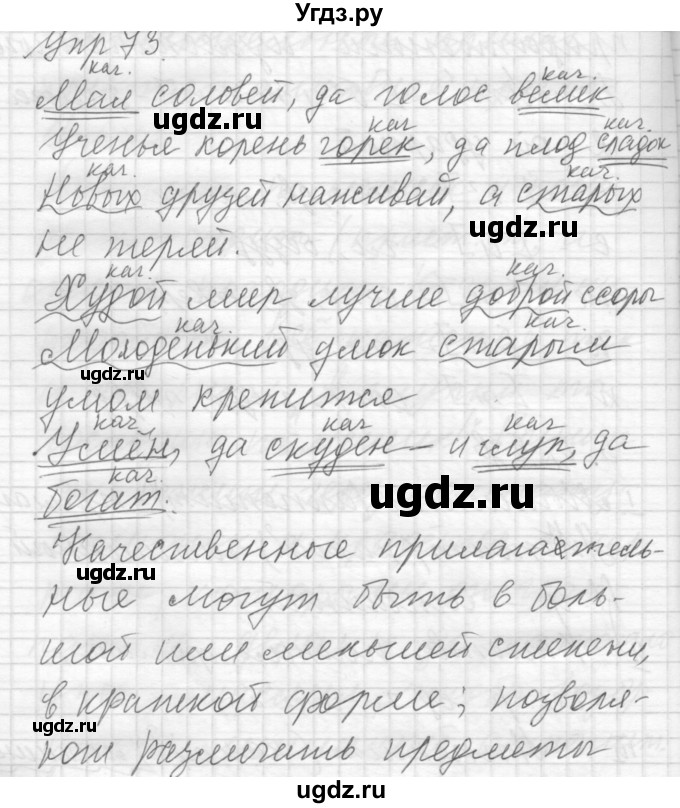 Угдз.ру
Упр 73.
кач. кач.
Мал соловей, да голос велик
ugdz.ru
кач кач.
Ученья корень горек, да плод сладок
кач. кач.
Новых друзей наживай, а старых
ugdz.ru
не теряй.
кач. кач.
Худой мир лучше доброй ссоры
кач. кач.
Молоденький умок старым
ugdz.ru
умом крепится
кач кач кач
Умён, да скуден – и глуп, да
кач.
богат.
ugdz.ru
Качественные прилагатель-
ugdz.ru
ные могут быть в боль-
шой или меньшей степени,
в краткой форме; позволя-
ugdz.ru
ют различать предметы
ugdz.ru